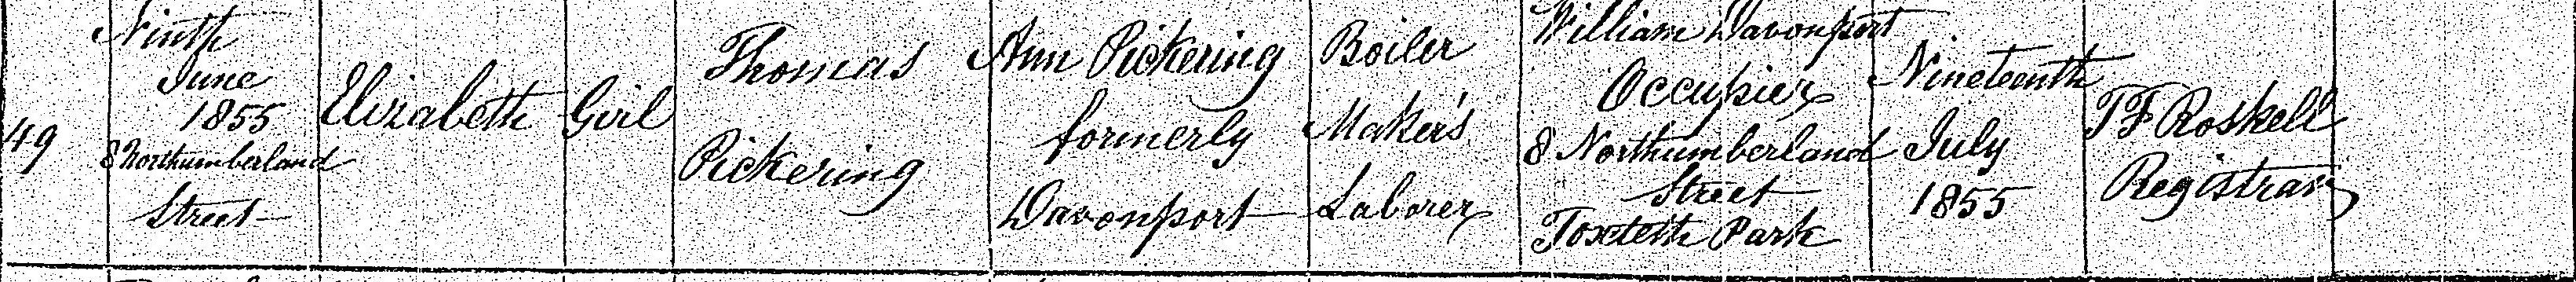 49
Ninth
June
1855
8 Northumberland
Street
Elizabeth
Girl
Thomas
Pickering
Ann Pickering
formerly
Davonport
Boiler
Maker's
Laborer
William Davonport
Occupier
8 Northumberland
Street
Toxteth Park
Nineteenth
July
1855
T F Roskell
Registrar